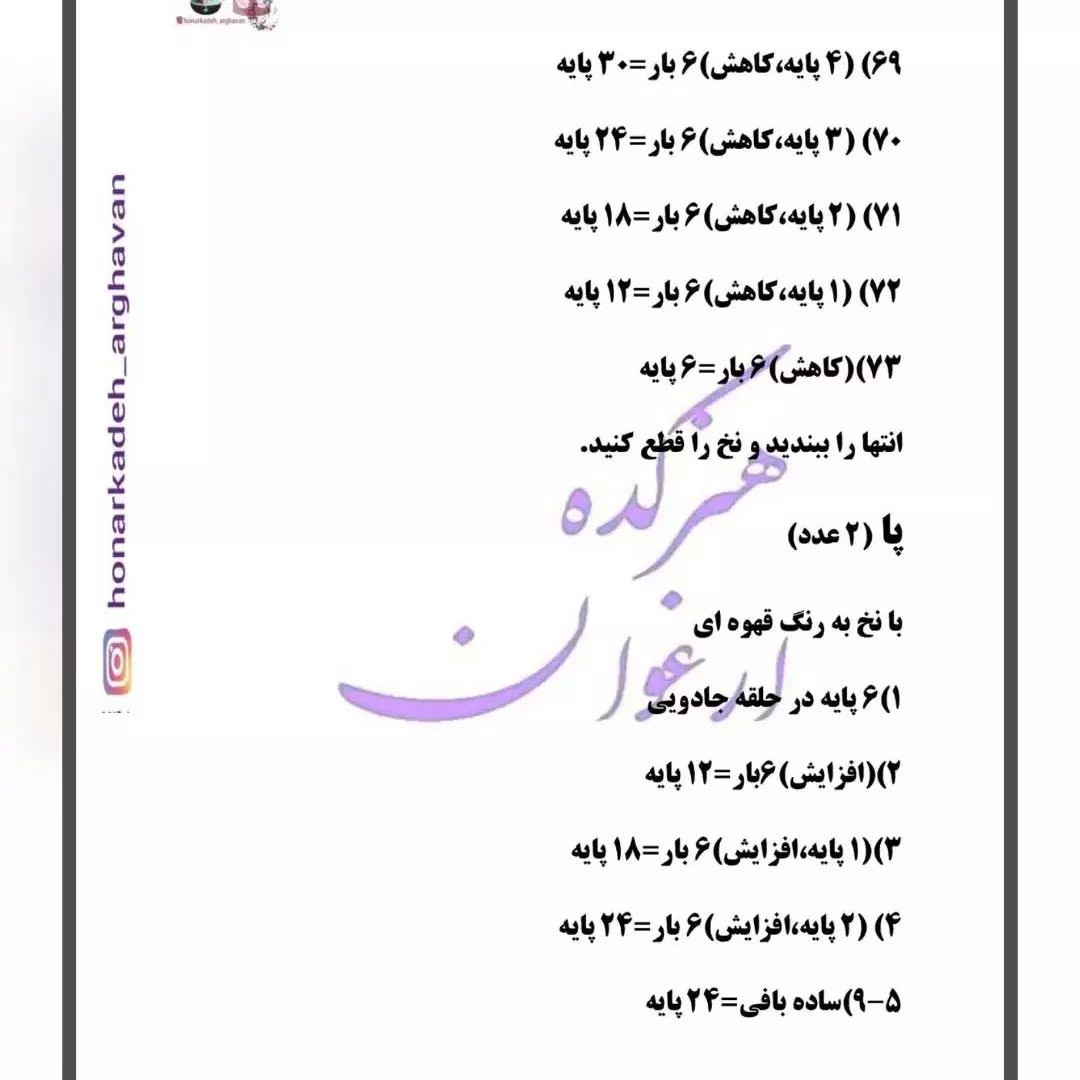 honarkadeh_arghavan
۶۹) (۴ پایه،کاهش)۶ بار=۳۰ پایه
۷۰) (۳ پایه،کاهش)۶ بار=۲۴ پایه
۷۱) (۲ پایه،کاهش)۶ بار=۱۸ پایه
۷۲) (۱ پایه،کاهش)۶ بار=۱۲ پایه
۷۳)(کاهش)۶ بار=۶ پایه
انتها را ببندید و نخ را قطع کنید.
پا (۲ عدد)
با نخ به رنگ قهوه ای
۱)۶ پایه در حلقه جادویی
۲)(افزایش)۶بار=۱۲ پایه
۳)(۱ پایه،افزایش)۶ بار=۱۸ پایه
۴) (۲ پایه،افزایش)۶ بار=۲۴ پایه
۵-۹)ساده بافی=۲۴ پایه
هنرکده
ارغوان
honarkadeh_arghavan